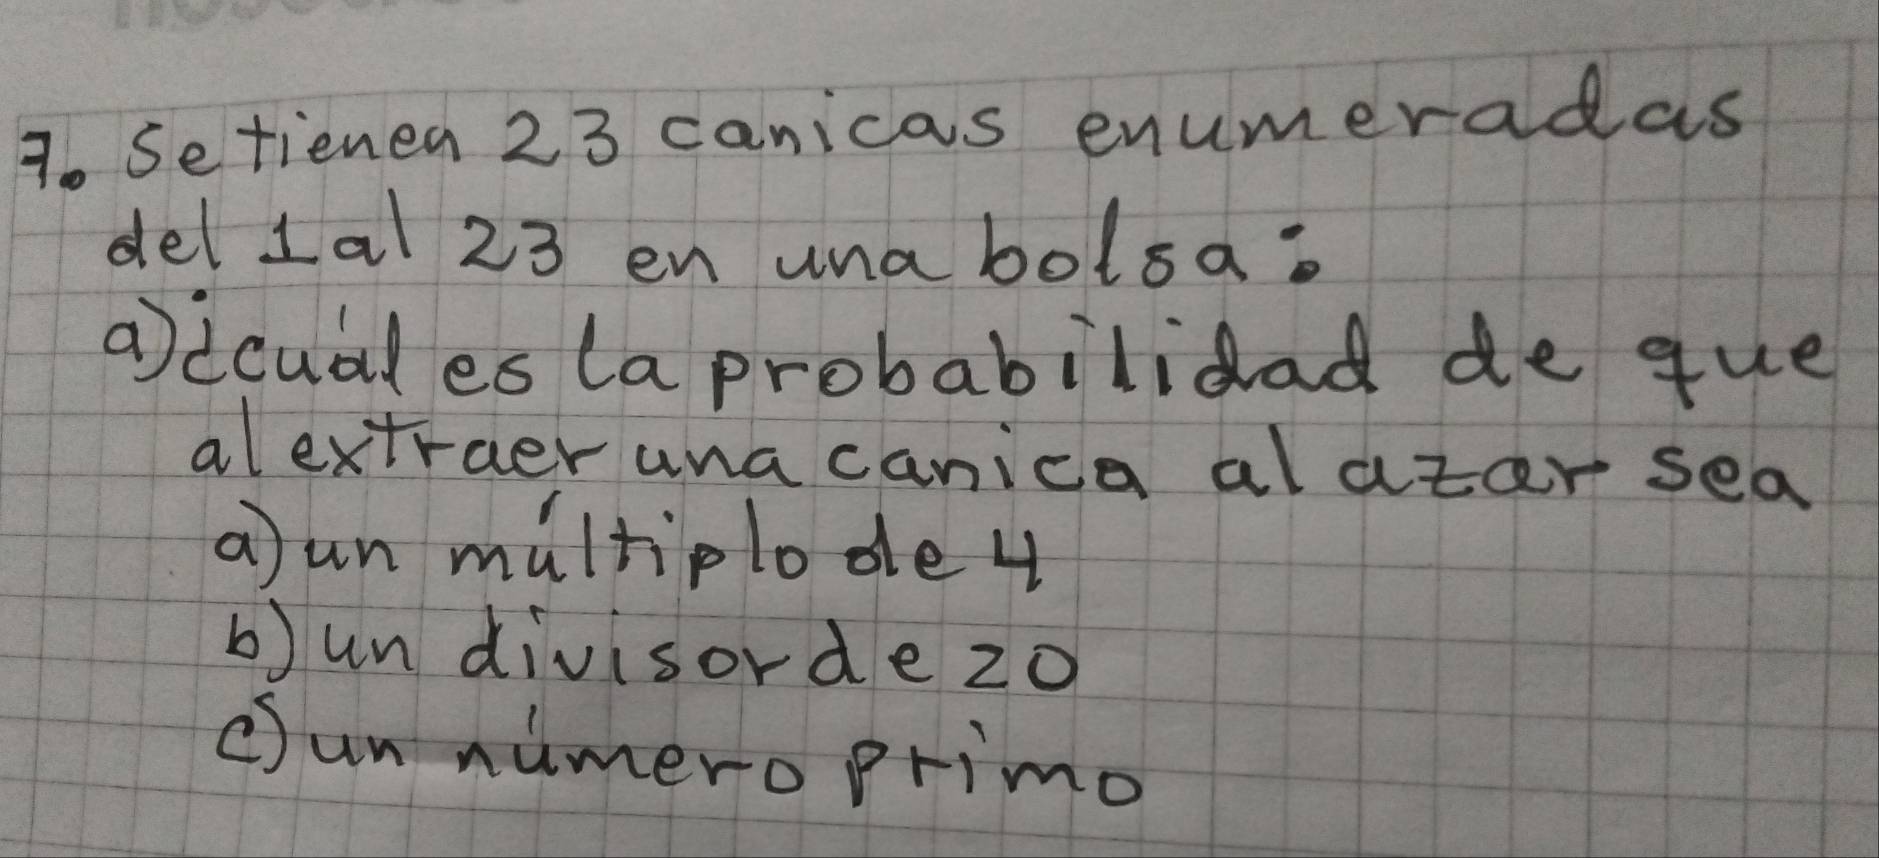 7. Se tienen 23 canicas enumeradas
del 1 al 23 en una bolsa:
a) ¿cuál es la probabilidad de que
al extraer una canica al azar sea
a) un múltiplo de 4
b) un divisor de 20
c) un número primo